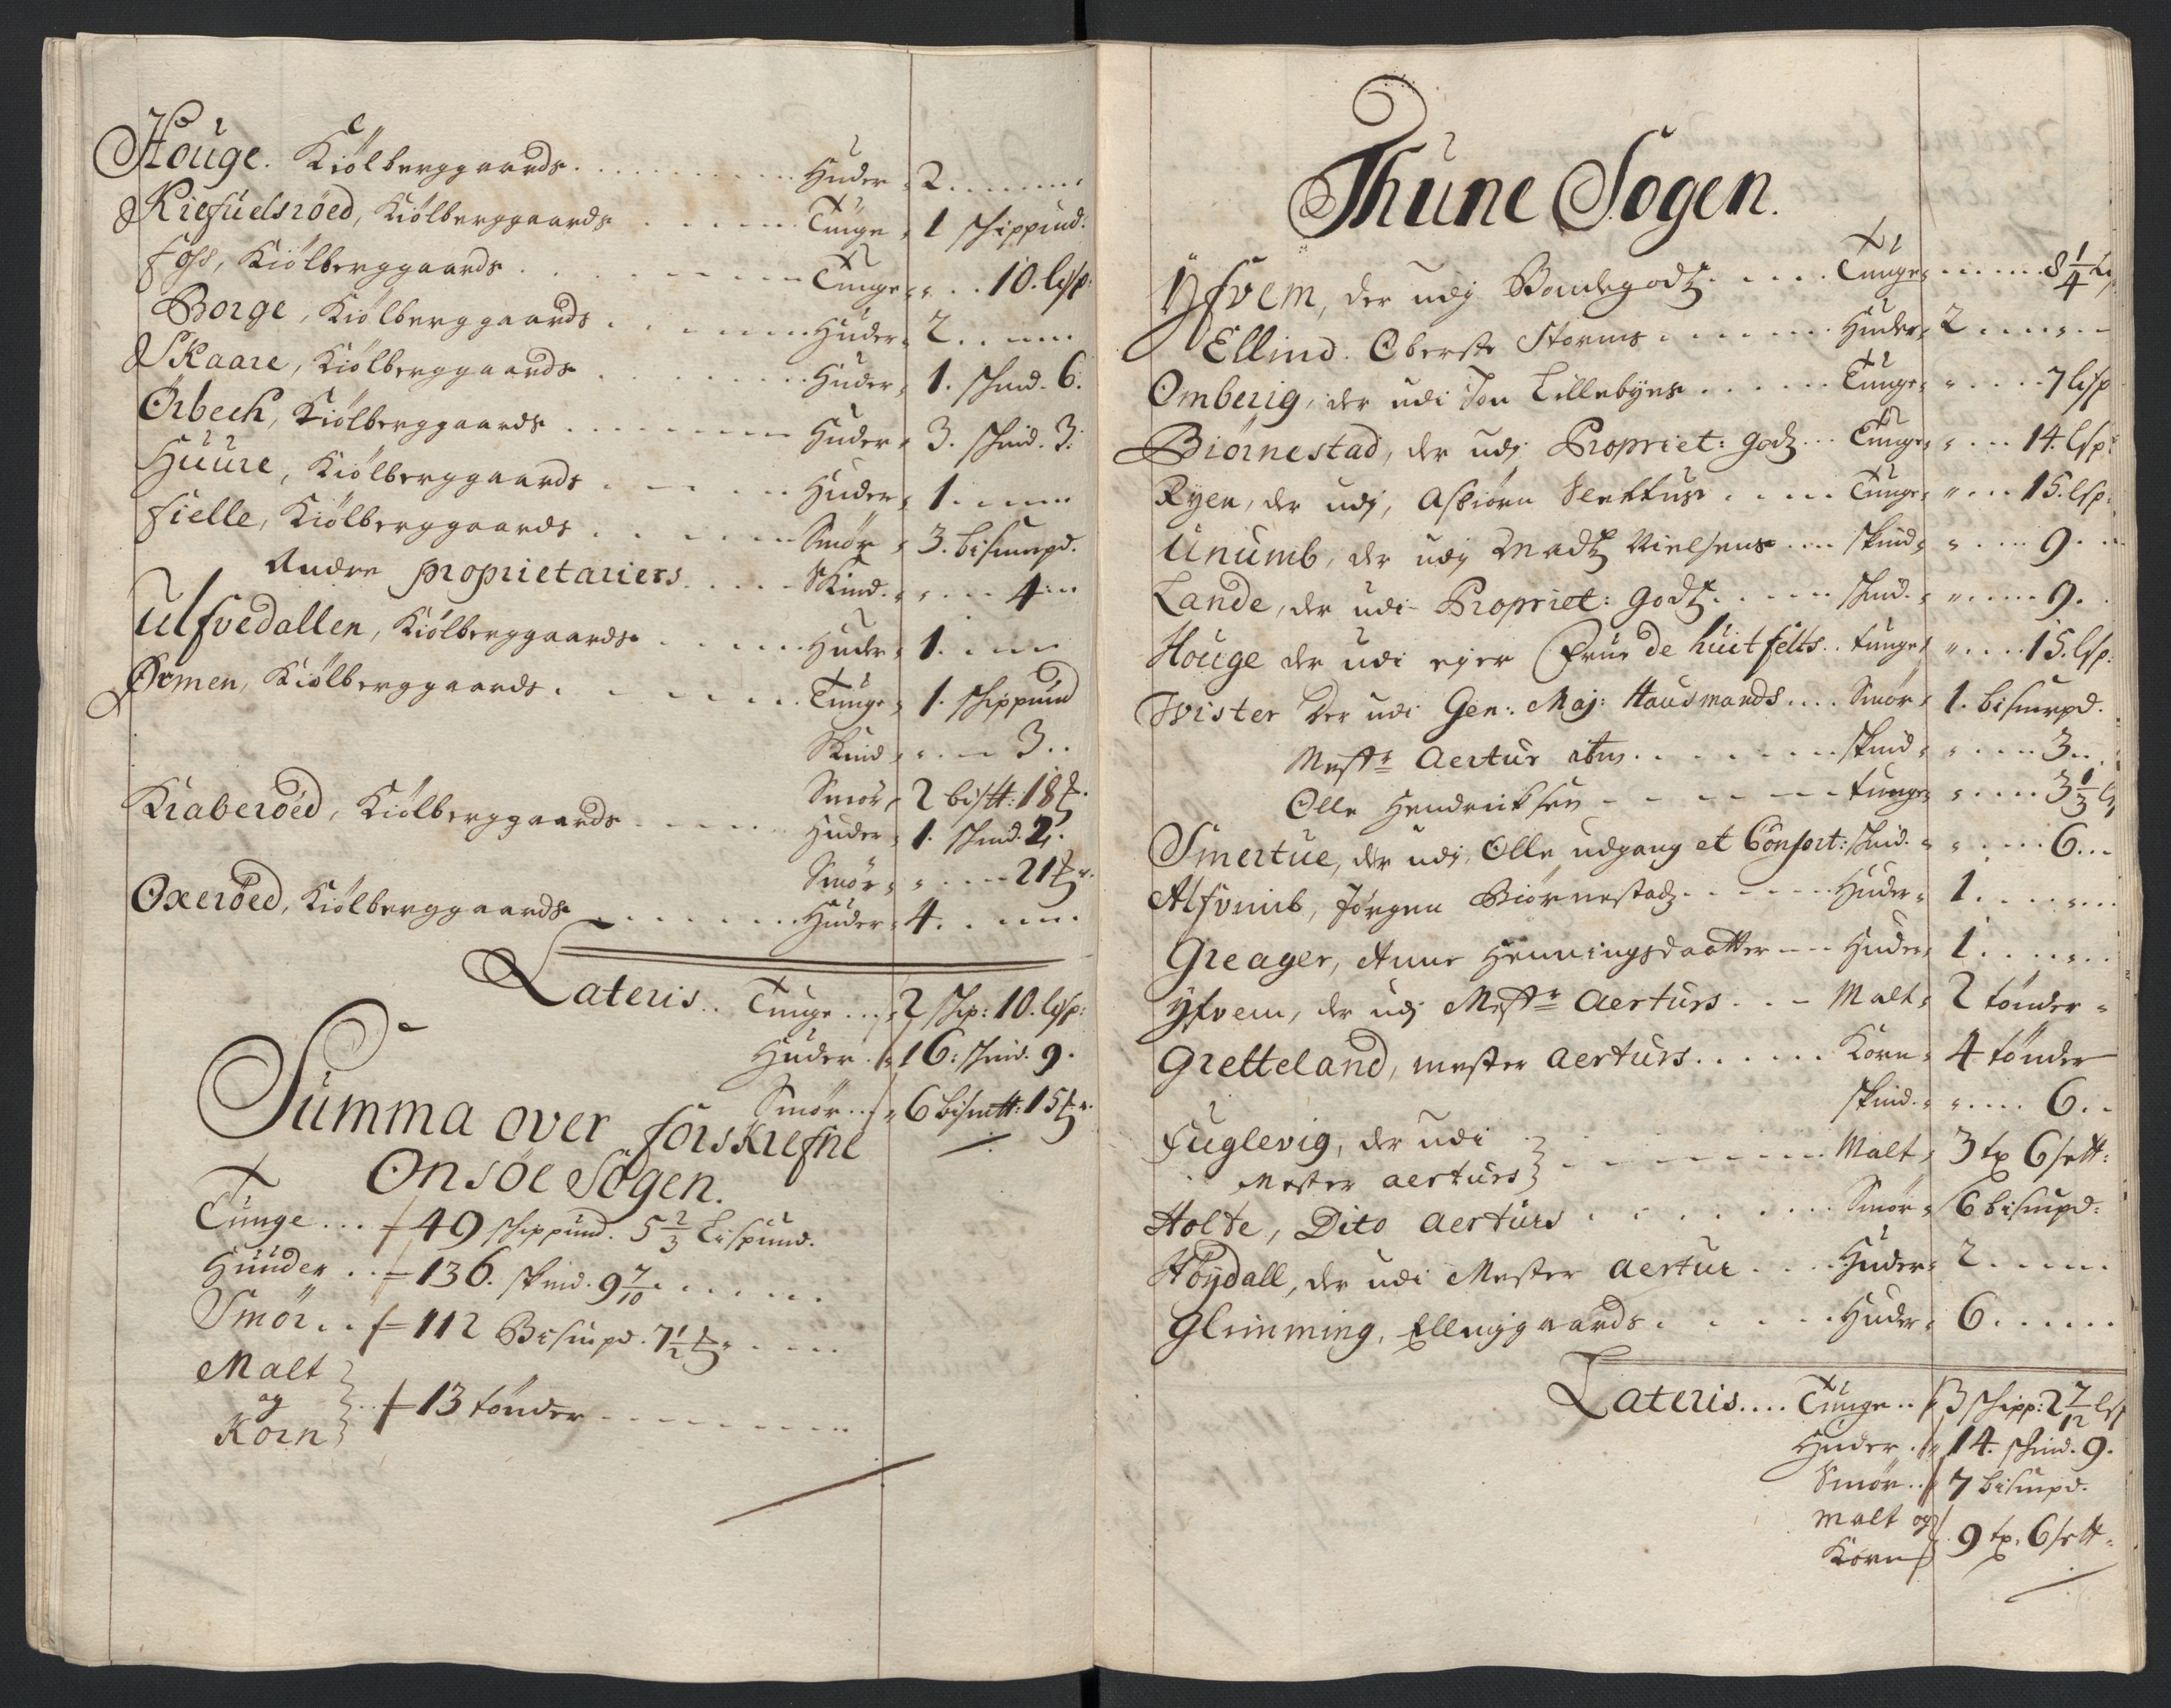 Houge. Kiölberggaards. Huder 2
Riefuelsröed, Kiölberggaards Tunge 1 schippund.
Foss, Kiölberggaards Tunge 10. lisp:
Borge, Kiölberggaards Huder 2
Skaare, Kiölberggaards Huder 1. schind. 6.
Örbech, Kiölberggaards Huder 3. schind. 3.
Huure, Kiölberggaards Huder 1
Fielle, Kiölberggaards Smör 3. bismerpd.
Andre proprietariers Skind. 4
Ulfvedallen, Kiölberggaards Huder 1
Ørmen, Kiölberggaards Tunge 1. schippund
Skind 3
Smör 2 bis℔: 18 ℔.
Kraberöed, Kiölberggaards Huder 1. schind. 2.
Smör 21 ℔r.
Oxeröed, Kiölberggaards Huder 4
Lateris.. Tunge 2 schip: 10. lisp:
Huder 16: schind. 9.
Smör 6 bism℔: 15 ℔r.
Summa over forskrefne
Onsöe Sogen.
Tunge 49 schippund. 5 2/3 Lispund.
Hüüder 136. skind. 9 7/10
Smör 112 Bismpd. 7 1/2 ℔
Malt
og
Korn 13 tönder
Thune Sogen.
Yfvem, der udj Bondegodtz Tunge 8 1/4 Li
Ellind. Oberste Storms Huder 2
Omberig, der udi Jon Lillebyes Tunge 7 lisp
Biörnestad, der udj Propriet: godtz Tunge 14. lsp:
Ryen, der udj, Asbiörn Tunge 15. lsp.
Unumb, der udj Madtz Nielsens skind 9.
Lande, der udi Propriet: godtz schind. 9.
Houge der udi ejer Frue de huitfelts tunge 15. lsp:
Wister der udi Gen: Maj: Hausmands Smör 1. bismrpd.
Mestr Aertur skind 3
Olle Hendrichsen tunge 3 1/3 l
Smertue, der udj, Olle udgang et Consort: schind. 6
Alfvimb, Jörgen Biörnestadz Huder 1
Greager, Anne Henningsdaatter Huder 1
Yfvem, der udj Mestr Aerturs Malt 2 tönder
Gretteland, mester Aerturs Korn 4 tönder
skind. 6
Fuglevig, der udi
Mester aerturs Malt 3 tr 6 sett:
Holte, Dito Aerturs Smör 6 bismpd:
Höydall, der udi Mester Aertur Huder 2
Glemming, Ellinggaards Huder 6
Lateris.... Tunge 3 schipp: 2 7/12 lsp
Huder 14. schind. 9.
Smör 7 bismpd.
Malt og
Korn 9 tr. 6 sett